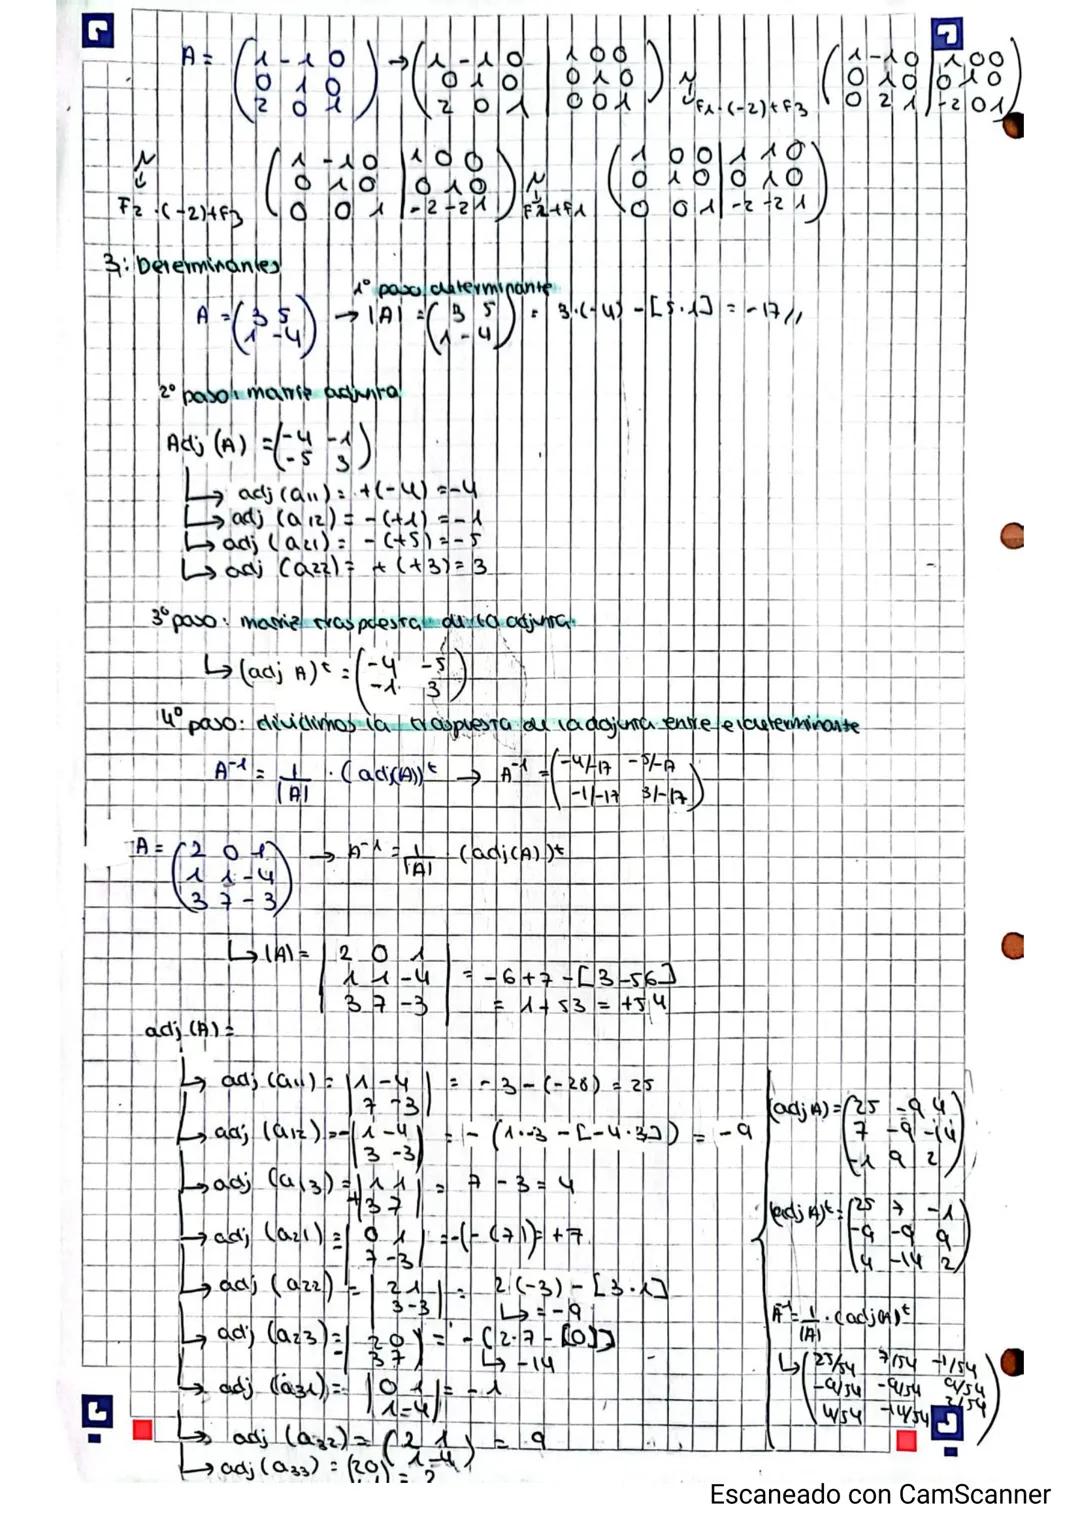 A = (1 -1 0 / 0 1 0 / 2 0 1) → (1 -1 0 / 0 1 0 / 2 0 1 | 1 0 0 / 0 1 0 / 0 0 1) ~ F1·(-2)+F3 (1 -1 0 / 0 1 0 / 0 2 1 | 1 0 0 / 0 1 0 / -2 0 1)
~ F2·(-2)+F3 (1 -1 0 / 0 1 0 / 0 0 1 | 1 0 0 / 0 1 0 / -2 -2 1) ~ F2+F1 (1 0 0 / 0 1 0 / 0 0 1 | 1 1 0 / 0 1 0 / -2 -2 1)
3: Determinantes
1º paso determinante
A = (3 5 / 1 -4) → |A| = (3 5 / 1 -4) = 3·(-4) - [5·1] = -17//
2º paso: matriz adjunta
Adj (A) = (-4 -1 / -5 3)
↳ adj (a11) = +(-4) = -4
↳ adj (a12) = -(+1) = -1
↳ adj (a21) = -(+5) = -5
↳ adj (a22) = +(+3) = 3
3º paso: matriz traspuesta de la adjunta
↳ (adj A)^t = (-4 -5 / -1 3)
4º paso: dividimos la traspuesta de la adjunta entre el determinante
A^-1 = 1/|A| · (adj(A))^t → A^-1 = (-4/-17 -5/-17 / -1/-17 3/-17)
A = (2 0 1 / 1 1 -4 / 3 7 -3) → A^-1 = 1/|A| (adj(A))^t
↳ |A| = |2 0 1 / 1 1 -4 / 3 7 -3| = -6+7-[3-56]
= 1+53 = +54
adj (A) =
↳ adj (a11) = |1 -4 / 7 -3| = -3-(-28) = 25
↳ adj (a12) = -|1 -4 / 3 -3| = -(1·-3 - [-4·3]) = -9
↳ adj (a13) = +|1 1 / 3 7| = 7-3 = 4
↳ adj (a21) = |0 1 / 7 -3| = -(-(71) = +7
↳ adj (a22) = |2 1 / 3 -3| = 2(-3) - [3·1]
↳ = -9
↳ adj (a23) = |2 0 / 3 7| = -(2·7 - [0])
↳ -14
↳ adj (a31) = |0 1 / 1 -4| = -1
↳ adj (a32) = (2 1 / 1 -4) = 9
↳ adj (a33) = (20) = 2
(adj A) = (25 -9 4 / 7 -9 -14 / -1 9 2)
(adj A)^t = (25 7 -1 / -9 -9 9 / 4 -14 2)
A^-1 = 1/|A| · (adj(A))^t
↳ (25/54 7/54 -1/54 / -9/54 -9/54 9/54 / 4/54 -14/54 2/54)
Escaneado con CamScanner